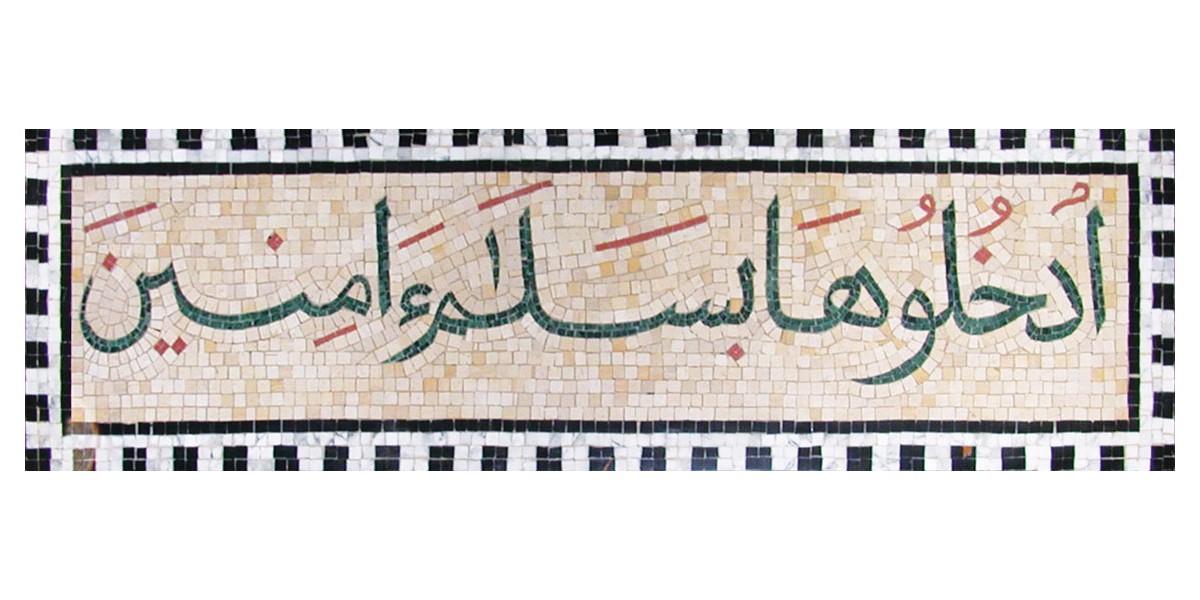 اُدخُلُوهَا بسَلَٰم ءَامِنينَ